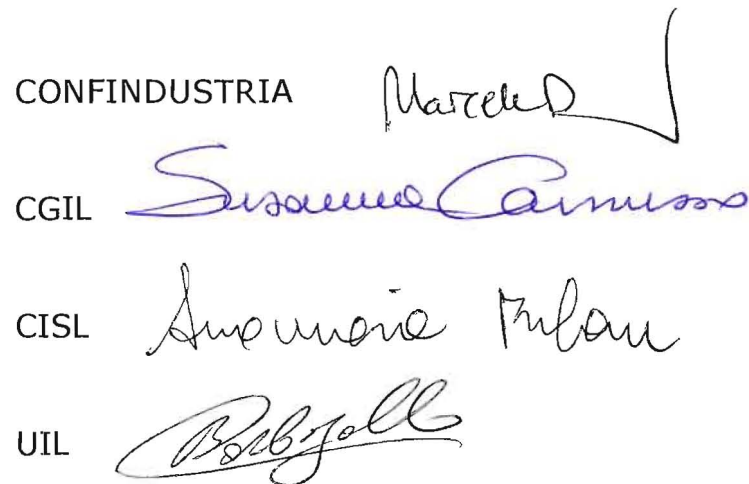 CONFINDUSTRIA
CGIL Susanna Camusso
CISL Annamaria Furlan
UIL